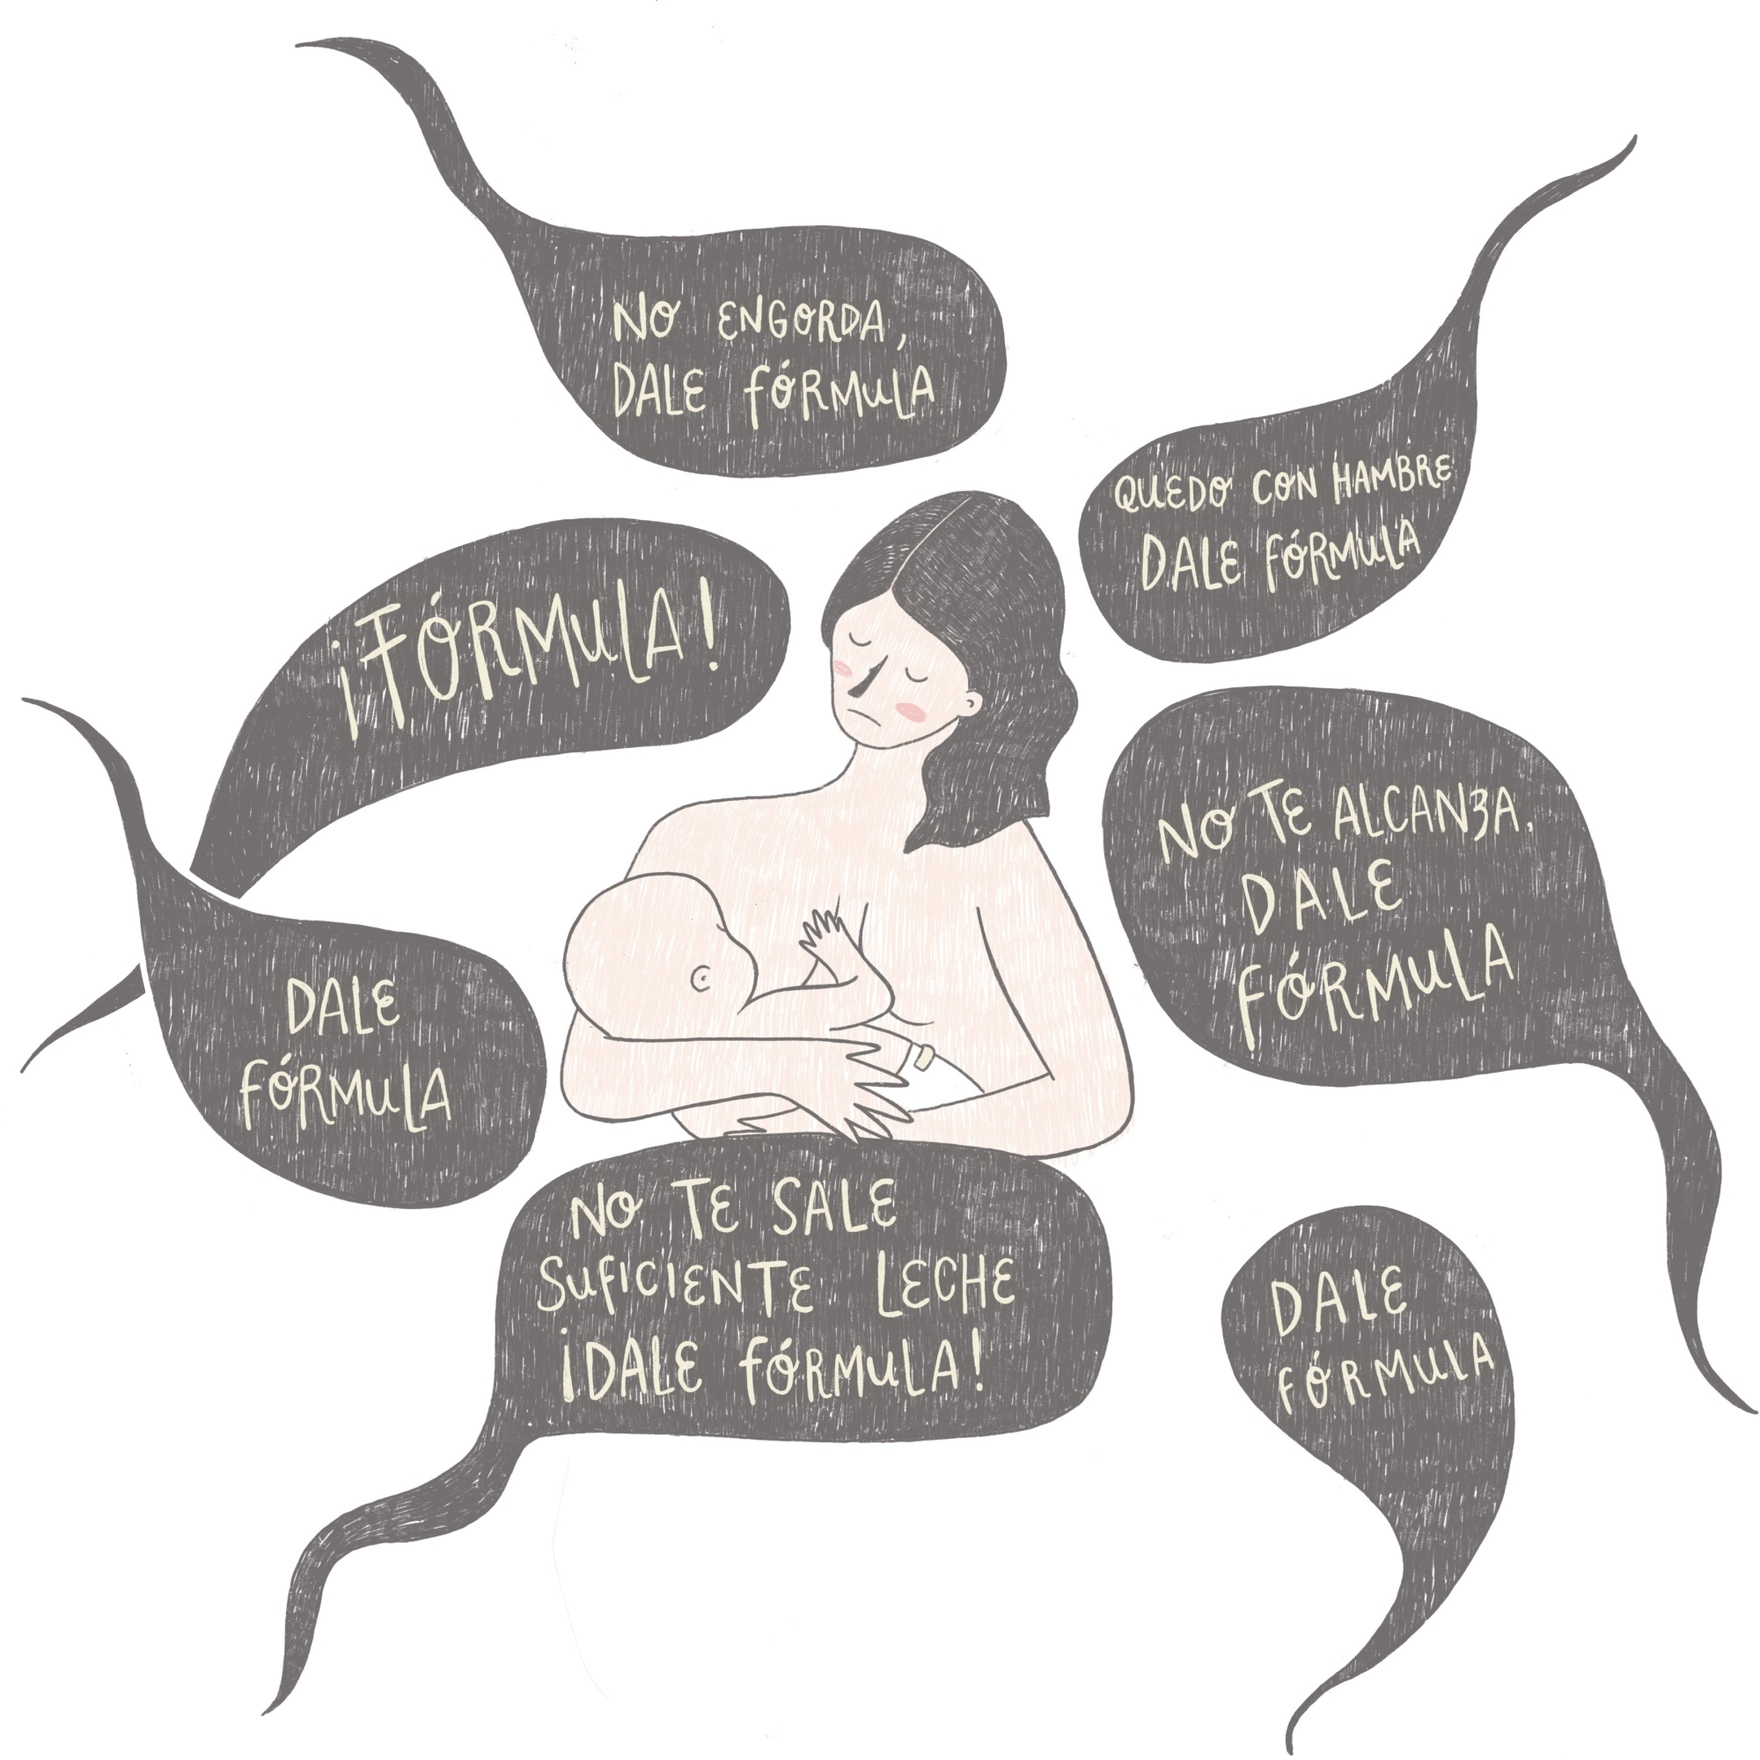 NO ENGORDA,
DALE FÓRMULA
QUEDO CON HAMBRE
DALE FÓRMULA
¡FÓRMULA!
NO TE ALCANZA.
DALE
FÓRMULA
DALE
FÓRMULA
NO TE SALE
SUFICIENTE LECHE
¡DALE FÓRMULA!
DALE
FÓRMULA